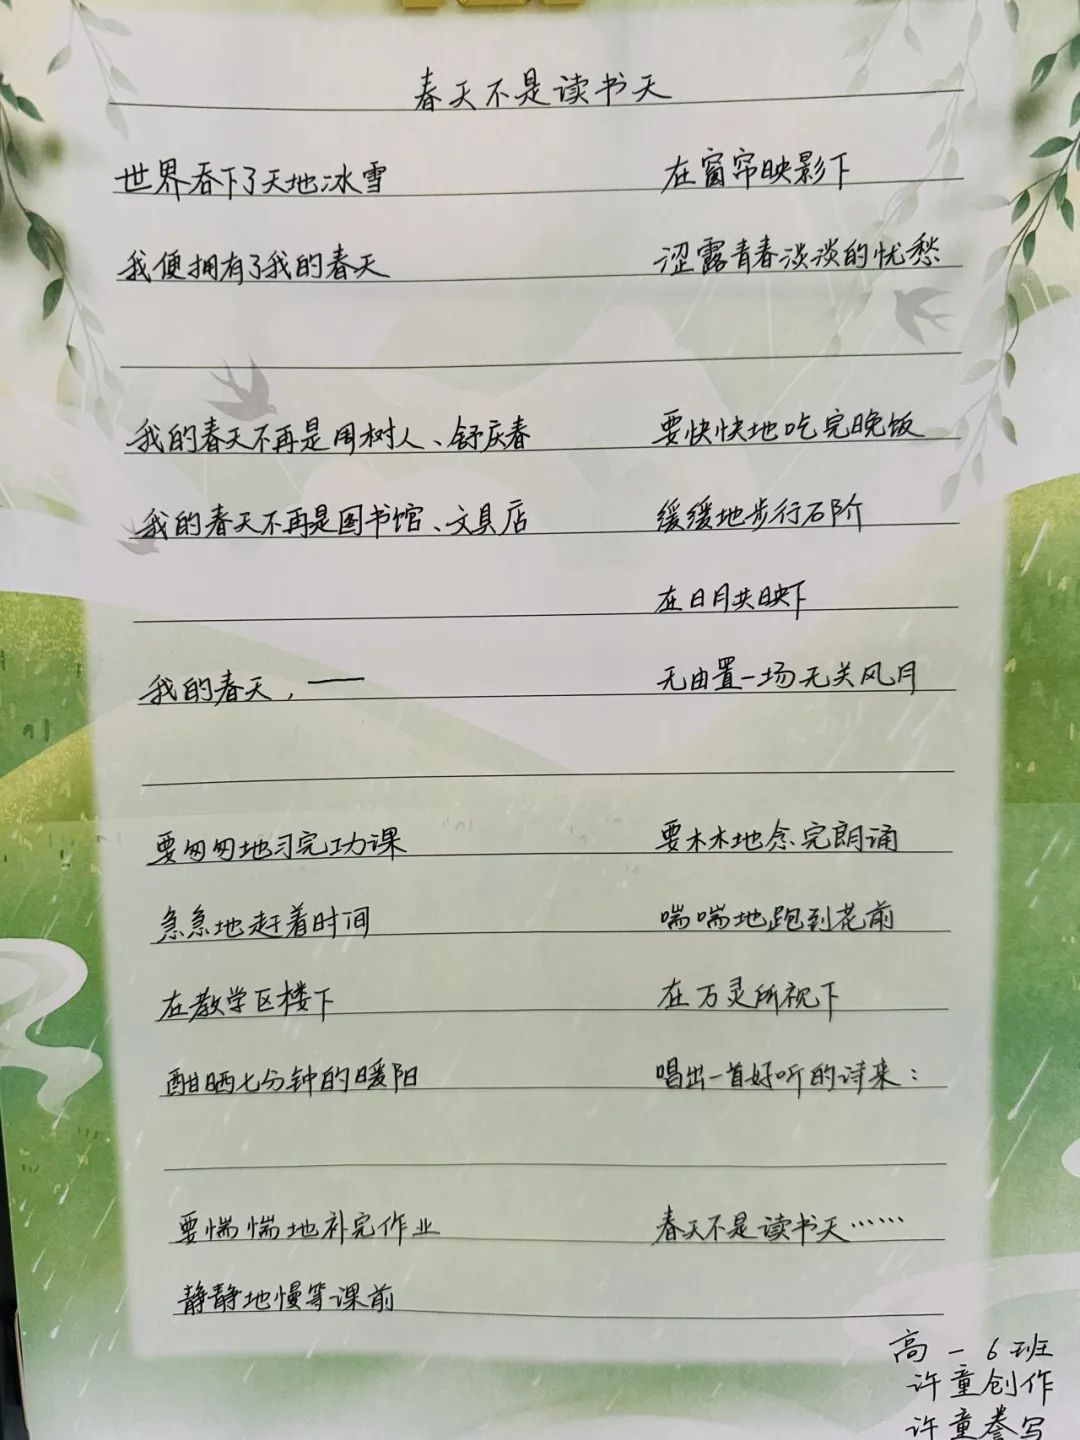 春天不是读书天
世界吞下了天地冰雪
我便拥有了我的春天
我的春天不再是周树人、舒庆春
我的春天不再是图书馆、文具店
我的春天，——
要匆匆地习完功课
急急地赶着时间
在教学区楼下
酣晒七分钟的暖阳
要惴惴地补完作业
静静地慢等课前
在窗帘映影下
涩露青春淡淡的忧愁
要快快地吃完晚饭
缓缓地步行石阶
在日月共映下
无由置一场无关风月
要木木地念完朗诵
喘喘地跑到花前
在万灵所视下
唱出一首好听的诗来：
春天不是读书天……
高一6班
许童创作
许童誊写